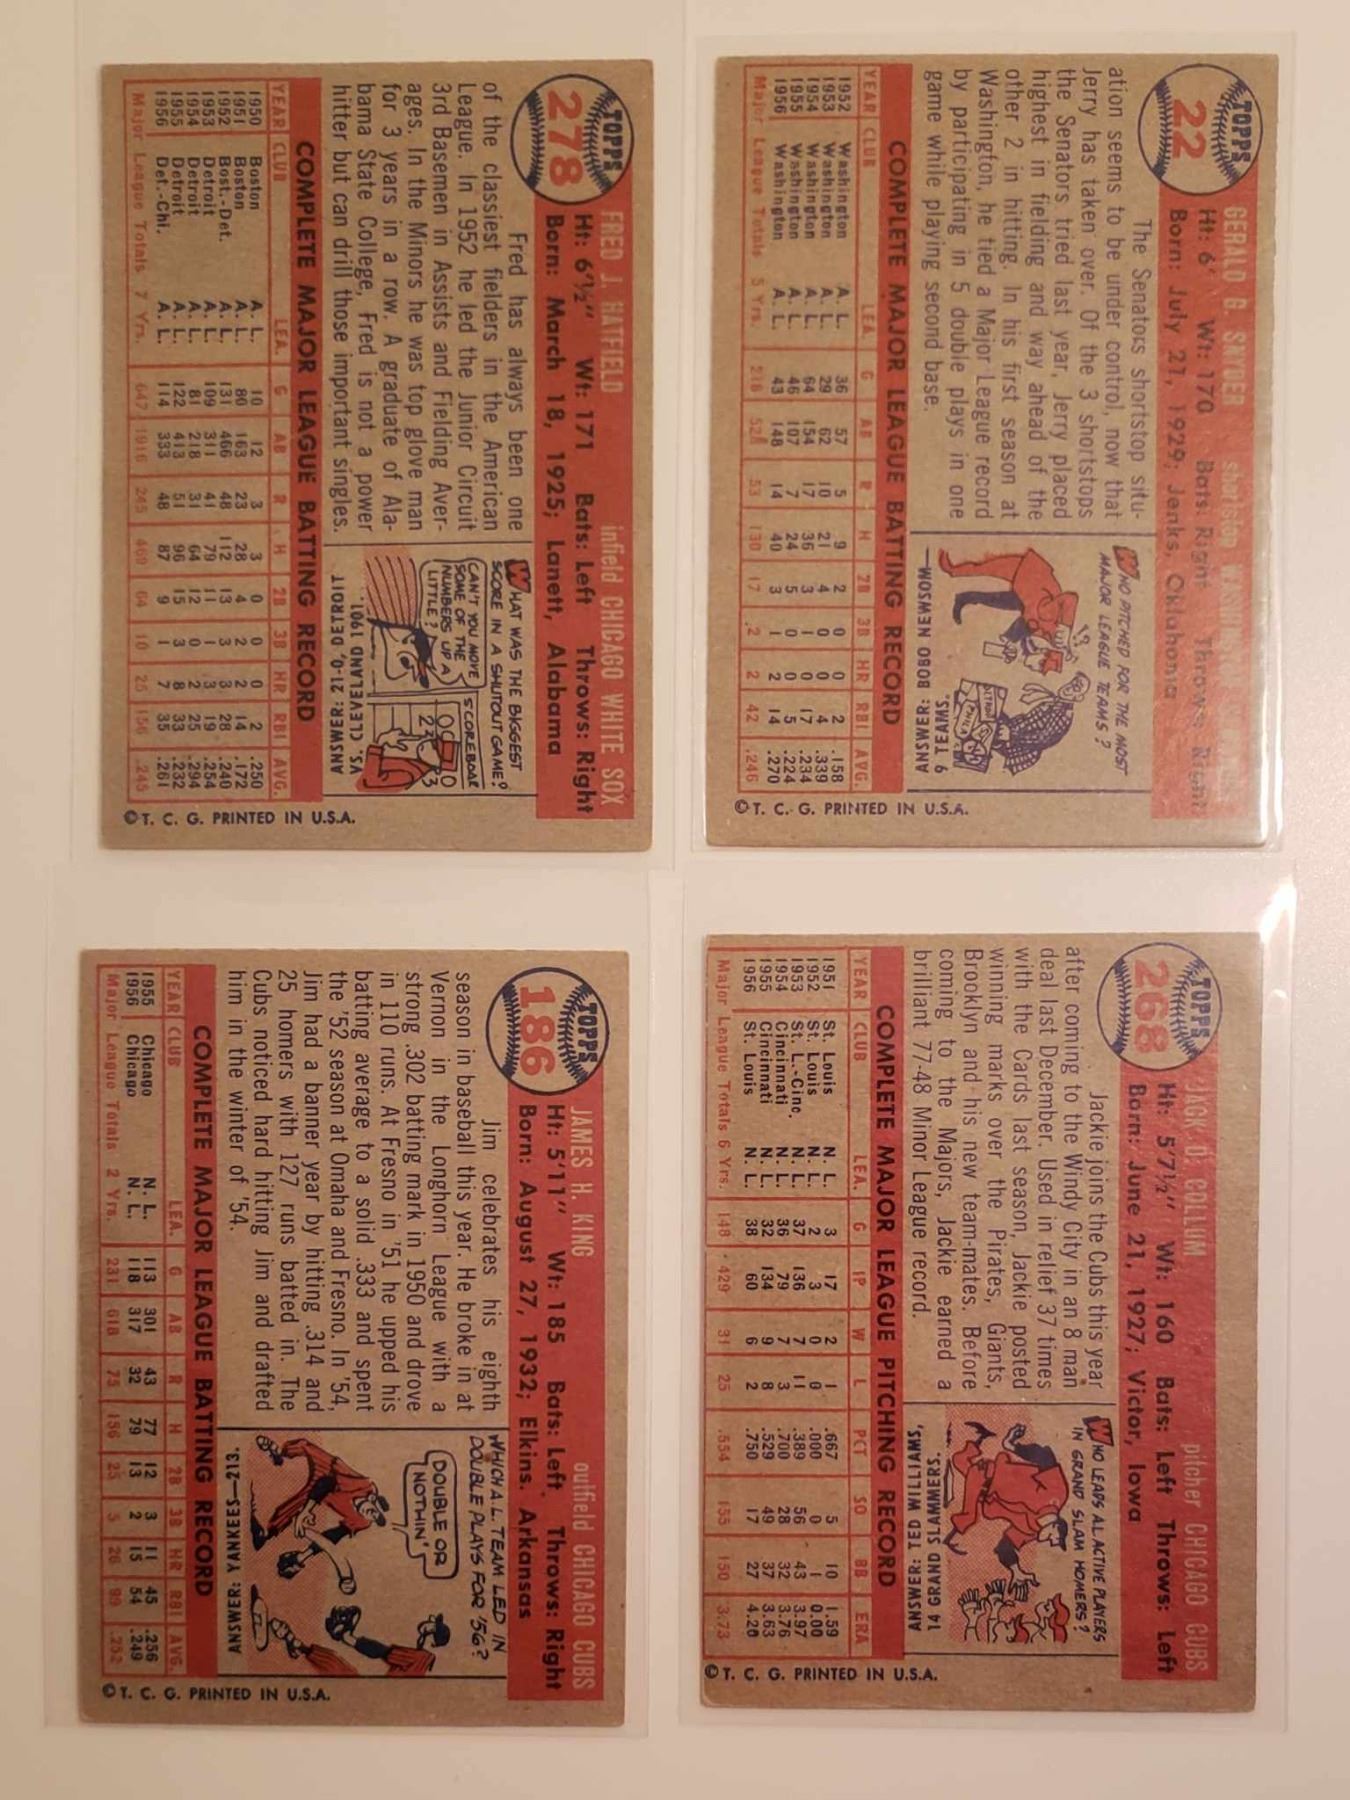 TOPPS
278
FRED J. HATFIELD infield CHICAGO WHITE SOX
Ht: 6'½" Wt: 171 Bats: Left Throws: Right
Born: March 18, 1925; Lanett, Alabama
Fred has always been one
of the classiest fielders in the American
League. In 1952 he led the Junior Circuit
3rd Basemen in Assists and Fielding Aver-
ages. In the Minors he was top glove man
for 3 years in a row. A graduate of Ala-
bama State College, Fred is not a power
hitter but can drill those important singles.
WHAT WAS THE BIGGEST
SCORE IN A SHUTOUT GAME?
CAN'T YOU MOVE
SOME OF THE
NUMBERS UP A
LITTLE?
SCOREBOAR
ANSWER: 21-0, DETROIT
VS. CLEVELAND 1901
COMPLETE MAJOR LEAGUE BATTING RECORD
YEAR CLUB LEA. G AB R H 2B 3B HR RBI AVG.
1950 Boston A. L. 10 12 3 3 0 0 0 2 .250
1951 Boston A. L. 80 163 23 28 4 2 2 14 .172
1952 Bost.-Det. A. L. 131 466 48 112 13 3 3 28 .240
1953 Detroit A. L. 109 311 41 79 11 1 3 19 .254
1954 Detroit A. L. 81 218 31 64 12 0 2 25 .294
1955 Detroit A. L. 122 413 51 96 15 3 8 33 .232
1956 Det.-Chi. A. L. 114 333 48 87 9 1 7 35 .261
Major League Totals 7 Yrs. 647 1916 245 469 64 10 25 156 .245
© T. C. G. PRINTED IN U.S.A.
TOPPS
22
GERALD G. SNYDER shortstop
Ht: 6' Wt: 170 Bats: Right Throws: Right
Born: July 21, 1929; Jenks, Oklahoma
The Senators shortstop situ-
ation seems to be under control, now that
Jerry has taken over. Of the 3 shortstops
the Senators tried last year, Jerry placed
highest in fielding and way ahead of the
other 2 in hitting. In his first season at
Washington, he tied a Major League record
by participating in 5 double plays in one
game while playing second base.
WHO PITCHED FOR THE MOST
MAJOR LEAGUE TEAMS?
ANSWER: BOBO NEWSOM—
9 TEAMS.
COMPLETE MAJOR LEAGUE BATTING RECORD
YEAR CLUB LEA. G AB R H 2B 3B HR RBI AVG.
1952 Washington A. L. 36 57 5 9 2 0 0 2 .158
1953 Washington A. L. 29 62 10 21 4 0 0 4 .339
1954 Washington A. L. 64 154 17 36 3 1 0 17 .234
1955 Washington A. L. 46 107 7 24 5 0 0 5 .224
1956 Washington A. L. 43 148 14 40 3 1 2 14 .270
Major League Totals 5 Yrs. 218 528 53 130 17 2 2 42 .246
© T. C. G. PRINTED IN U.S.A.
TOPPS
186
JAMES H. KING outfield CHICAGO CUBS
Ht: 5'11" Wt: 185 Bats: Left Throws: Right
Born: August 27, 1932; Elkins, Arkansas
Jim celebrates his eighth
season in baseball this year. He broke in at
Vernon in the Longhorn League with a
strong .302 batting mark in 1950 and drove
in 110 runs. At Fresno in '51 he upped his
batting average to a solid .333 and spent
the '52 season at Omaha and Fresno. In '54,
Jim had a banner year by hitting .314 and
25 homers with 127 runs batted in. The
Cubs noticed hard hitting Jim and drafted
him in the winter of '54.
WHICH A.L. TEAM LED IN
DOUBLE PLAYS FOR '56?
DOUBLE OR
NOTHIN'
ANSWER: YANKEES—213.
COMPLETE MAJOR LEAGUE BATTING RECORD
YEAR CLUB LEA. G AB R H 2B 3B HR RBI AVG.
1955 Chicago N. L. 113 301 43 77 12 3 11 45 .256
1956 Chicago N. L. 118 317 32 79 13 2 15 54 .249
Major League Totals 2 Yrs. 231 618 75 156 25 5 26 99 .252
© T. C. G. PRINTED IN U.S.A.
TOPPS
268
JACK D. COLLUM pitcher CHICAGO CUBS
Ht: 5'7½" Wt: 160 Bats: Left Throws: Left
Born: June 21, 1927; Victor, Iowa
Jackie joins the Cubs this year
after coming to the Windy City in an 8 man
deal last December. Used in relief 37 times
with the Cards last season, Jackie posted
winning marks over the Pirates, Giants,
Brooklyn and his new team-mates. Before
coming to the Majors, Jackie earned a
brilliant 77-48 Minor League record.
WHO LEADS AL ACTIVE PLAYERS
IN GRAND SLAM HOMERS?
ANSWER: TED WILLIAMS,
14 GRAND SLAMMERS.
COMPLETE MAJOR LEAGUE PITCHING RECORD
YEAR CLUB LEA. G IP W L PCT SO BB ERA
1951 St. Louis N. L. 3 17 2 1 .667 5 10 1.59
1952 St. Louis N. L. 2 3 0 0 .000 0 1 0.00
1953 St. L.-Cinc. N. L. 37 136 7 11 .389 56 43 3.97
1954 Cincinnati N. L. 36 79 7 3 .700 28 32 3.76
1955 Cincinnati N. L. 32 134 9 8 .529 49 37 3.63
1956 St. Louis N. L. 38 60 6 2 .750 17 27 4.20
Major League Totals 6 Yrs. 148 429 31 25 .554 155 150 3.73
© T. C. G. PRINTED IN U.S.A.